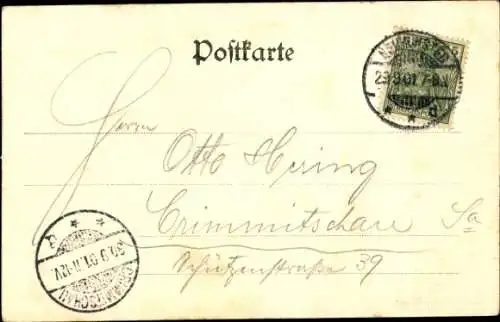 Postkarte
29.9.01. 7-8
d
Herrn
Otto Hering
Crimmitschau Sa
Schützenstraße 39
30.9.01. 11-12V
CRIMMITSCHAU